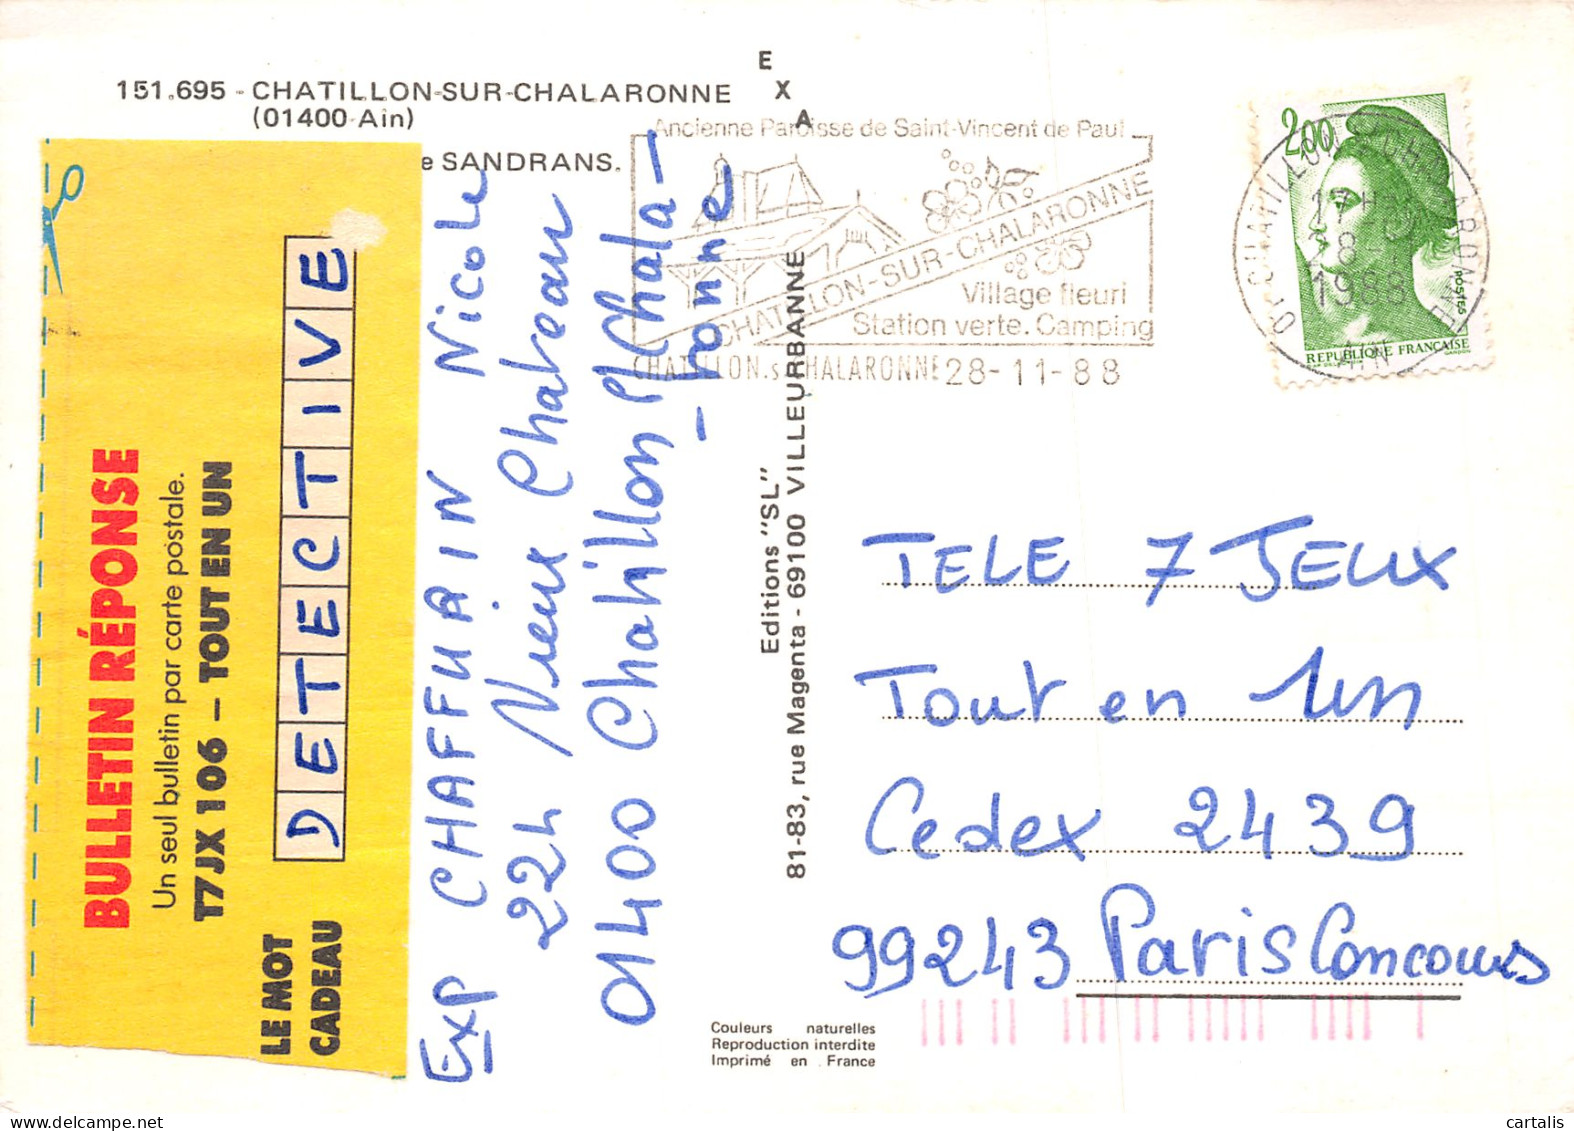 151.695 - CHATILLON-SUR-CHALARONNE
(01400 Ain)
e SANDRANS.
E
X
A
Ancienne Paroisse de Saint-Vincent de Paul
CHATILLON-SUR-CHALARONNE
Village fleuri
Station verte. Camping
CHATILLON.s.CHALARONNE 28-11-88
2,00
POSTES
REPUBLIQUE FRANÇAISE
GANDON
17 H
28
1988
AIN
BULLETIN RÉPONSE
Un seul bulletin par carte postale.
T7JX 106 – TOUT EN UN
LE MOT
CADEAU
DETECTIVE
Exp CHAFFURIN Nicole
224 Vieux Chateau
01400 Chatillon / Chala-
-ronne
Editions "SL"
81-83, rue Magenta - 69100 VILLEURBANNE
TELE 7 JEUX
Tout en 1un
Cedex 2439
99243 Paris Concours
Couleurs naturelles
Reproduction interdite
Imprimé en France
cartalis